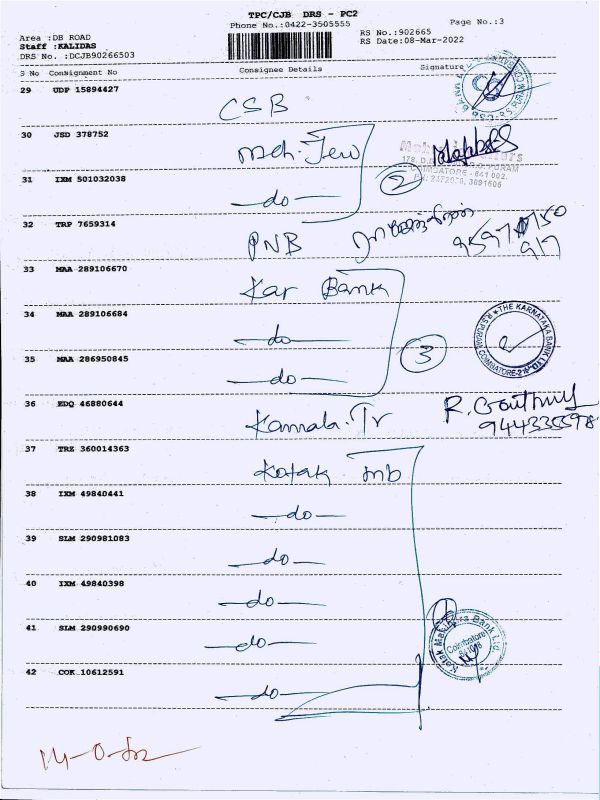 TPC/CJB DRS - PC2
Phone No.:0422-3505555
Page No.:3
Area :DB ROAD
Staff :KALIDAS
DRS No. :DCJB90266503
RS No.:902665
RS Date:08-Mar-2022
S No Consignment No Consignee Details Signature
29 UDP 15894427
CSB
30 JSD 378752
Meh. Jew
COIMBATORE - 641 002.
31 IXM 501032038
2
—do—
32 TRP 7659314
PNB
33 MAA 289106670
Kar Bank
34 MAA 289106684
—do—
THE KARNATAKA BANK LTD
R.S.PURAM COIMBATORE-2
35 MAA 286950845
3
—do—
36 EDQ 46880644
Kamala. Tr
R. Gouthny
37 TRZ 360014363
Kotak mb
38 IXM 49840441
—do—
39 SLM 290981083
—do—
40 IXM 49840398
—do—
41 SLM 290990690
—do—
Kotak Mahindra Bank Ltd.
Coimbatore
42 COK 10612591
—do—